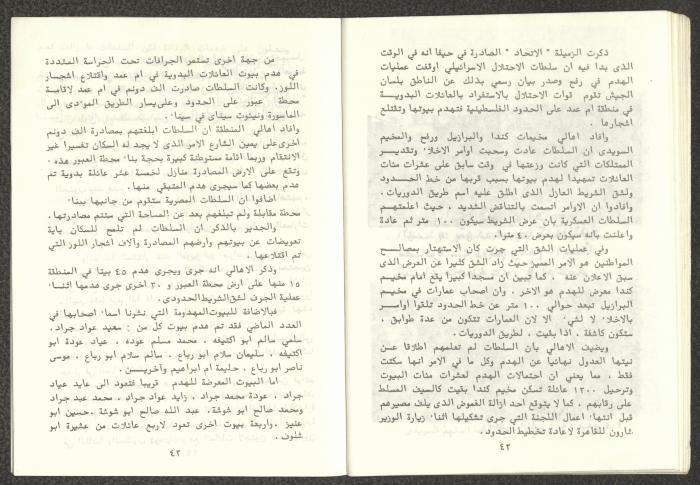 ذكرت الزميلة " الاتحاد " الصادرة في حيفا انه في الوقت
الذى بدا فيه ان سلطات الاحتلال الاسرائيلي اوقفت عمليات
الهدم في رفح وصدر بيان رسمي بذلك عن الناطق بلسان
الجيش تقوم قوات الاحتلال بالاستفراد بالعائلات البدويـــة
في منطقة ام عمد على الحدود الفلسطينية فتهدم بيوتها وتقتلع
اشجارها .
وافاد اهالي مخيمات كندا والبرازيل ورفح والمخيم
السويدى ان السلطات عادت وسحبت اوامر الاخلاء وتقديـــر
الممتلكات التي كانت وزعتها في وقت سابق على عشرات مئات
العائلات تمهيدا لهدم بيوتها بسبب قربها من خط الحـــدود
ولشق الشريط العازل الذى اطلق عليه اسم طريق الدوريات .
وافادوا ان الاوامر اتسمت بالتناقض الشديد ، حيث اعلمتهـم
السلطات العسكرية بان عرض الشريط سيكون ١٠٠ متر ثم عادة
واعلنت بانه سيكون بعرض ٤٠ مترا .
وفي عمليات الشق التي جرت كان الاستهتار بمصالـــح
المواطنين هو الامر المميز حيث زاد الشق كثيرا عن العرض الذى
سبق الاعلان عنه . كما تبين ان مسجدا كبيرا يقع امام مخيـم
كندا معرض للهدم هو الاخر . وان اصحاب عمارات في مخيـم
البرازيل تبعد حوالي ١٠٠ متر عن خط الحدود تلقوا اوامـــر
بالاخلاء لا لشيء الا لان العمارات تتكون من عدة طوابق ،
ستكون كاشفة ، اذا بقيت ، لطريق الدوريات .
ويضيف الاهالي بأن السلطات لم تعلمهم اطلاقا عـــن
نيتها العدول نهائيا عن الهدم وكل ما في الامر انها سكتت
فقط ، مما يعني ان احتمالات الهدم لعشرات مئات البيوت
وترحيل ١٢٠٠ عائلة تسكن مخيم كندا بقيت كالسيف المسلط
على رقابهم ، كما لا يتوقع احد ازالة الغموض الذى يلف مصيرهم
قبل انتهاء اعمال اللجنة التي جرى تشكيلها اثناء زيارة الوزير
شارون للقاهرة لاعادة تخطيط الحدود .
٤٢
من جهة اخرى تستمر الجرافات تحت الحراسة المشددة
في هدم بيوت العائلات البدوية في ام عمد واقتلاع اشجـــار
اللوز. وكانت السلطات صادرت الف دونم في ام عمد لاقامـة
محطة عبور على الحدود وعلى يسار الطريق المؤدى الى
الماسورة ونيئوت سيناى في سيناء .
وافاد اهالي المنطقة ان السلطات ابلغتهم بمصادرة الف دونم
اخرى على يمين الشارع الامر الذى لا يجد له السكان تفسيرا غير
الانتقام وربما اقامة مستوطنة كبيرة بحجة بناء محطة العبور هذه .
وتقع على الارض المصادرة منازل لخمسة عشر عائلة بدوية تم
هدم بعضها كما سيجرى هدم المتبقي منها .
اضافوا ان السلطات المصرية ستقوم من جانبها ببناء
محطة مقابلة ولم تبلغهم بعد عن المساحة التي سيتم مصادرتها .
والجدير بالذكر ان السلطات لم تلمح للسكان باية
تعويضات عن بيوتهم وارضهم المصادرة وآلاف اشجار اللوز التي
تم اقتلاعها .
وذكر الاهالي انه جرى ويجرى هدم ٤٥ بيتا في المنطقة
١٥ منها على ارض محطة العبور و ٣٠ اخرى جرى هدمها اثناء
عملية الجرف لشق الشريط الحدودى .
فبالاضافة للبيوت المهدومة التي نشرنا اسماء اصحابها في
العدد الماضي فقد تم هدم بيوت كل من : سعيد عواد جراد .
سلمي سالم ابو اكتيفه ، محمد مسلم عوده ، عياد عودة ابو
اكتيفه ، سليمان سلام ابو رباع . سالم سلام ابو رباع ، موسى
ناصر ابو رباع . حليمة ام ابراهيم وآخريـــن .
اما البيوت المعرضة للهدم قريبا فتعود الى عايد عياد
جراد ، عودة محمد جراد . زايد عواد جراد ، محمد عبد جراد
ومحمد صالح ابو شوشة . عبد الله صالح ابو شوشة . حسين ابو
عنيز . واربعة بيوت اخرى تعود لاربع عائلات من عشيرة ابو
شلوف .
٤٣